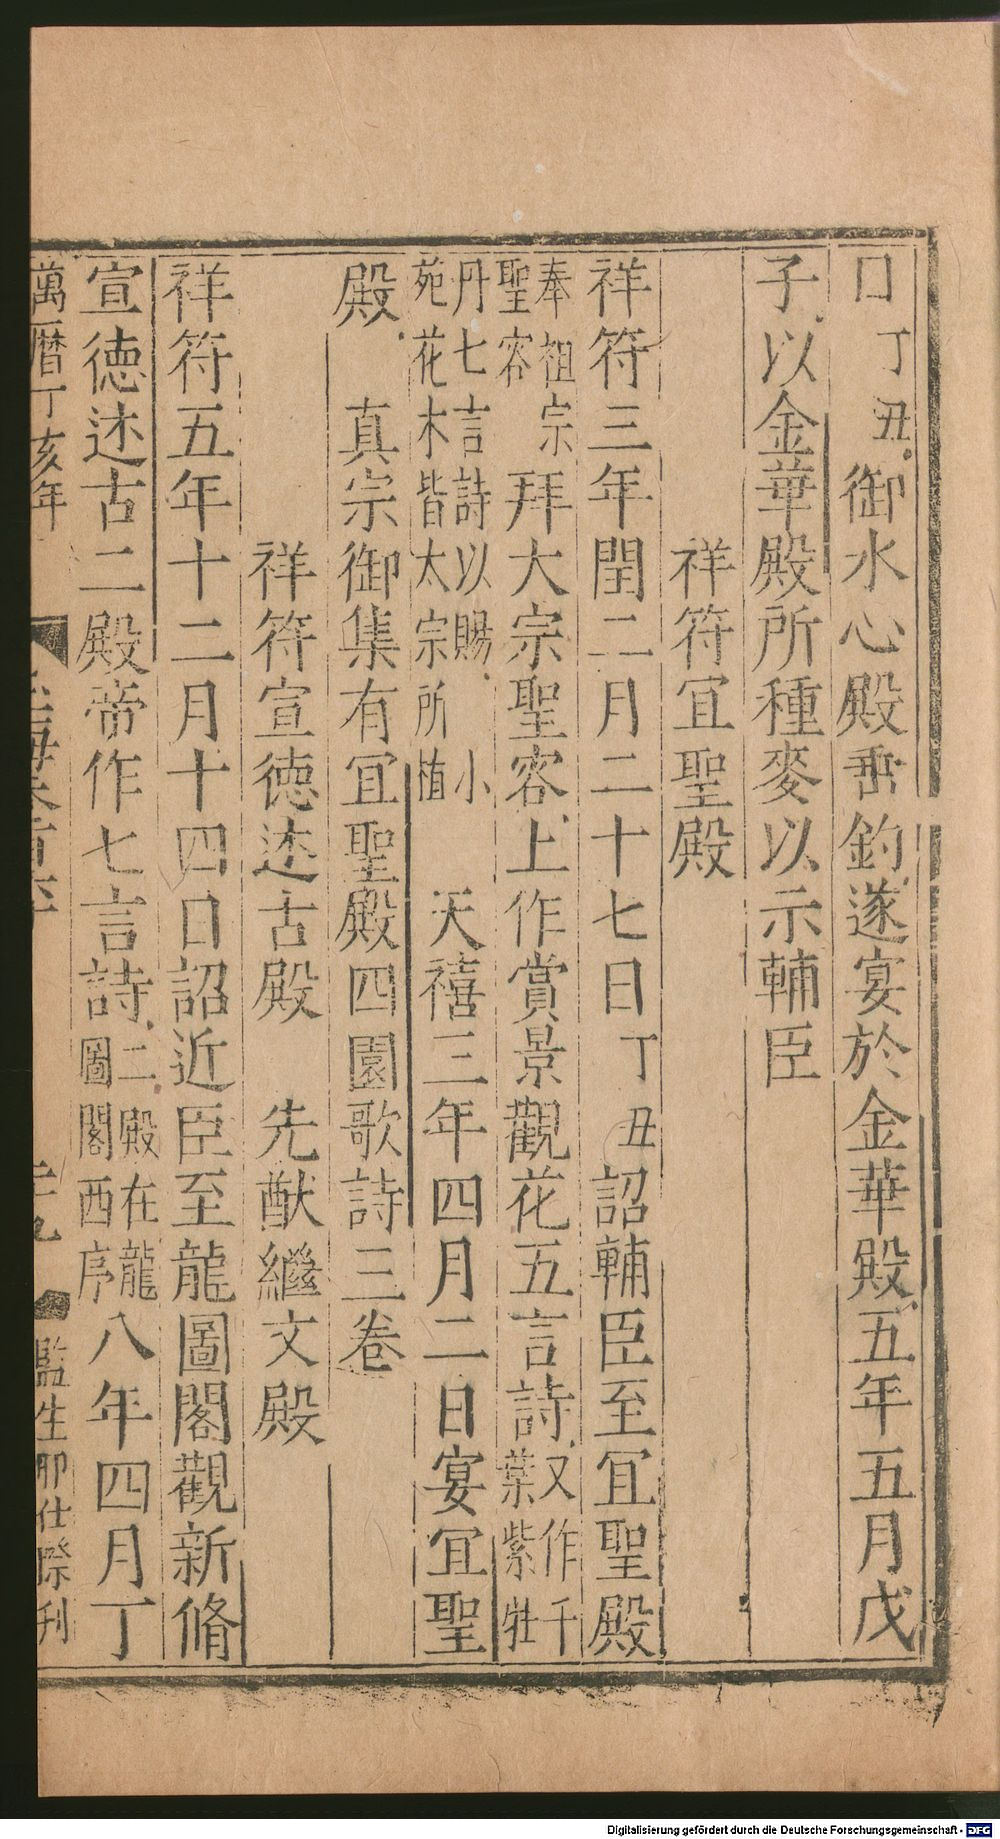 日丁丑御水心殿垂釣遂宴於金華殿五年五月戊
子以金華殿所種麥以示輔臣
祥符宜聖殿
祥符三年閏二月二十七日丁丑詔輔臣至宜聖殿
奉祖宗
聖容
拜大宗聖容上作賞景觀花五言詩
又作千
葉紫牡
丹七言詩以賜小
苑花木皆太宗所植
天禧三年四月二日宴宜聖
殿 真宗御集有宜聖殿四園歌詩三卷
祥符宣德述古殿 先猷繼文殿
祥符五年十二月十四日詔近臣至龍圖閣觀新脩
宣德述古二殿帝作七言詩
二殿在龍
圖閣西序
八年四月丁
萬曆丁亥年
二十九
監生 仕際刋
Digitalisierung gefördert durch die Deutsche Forschungsgemeinschaft - DFG